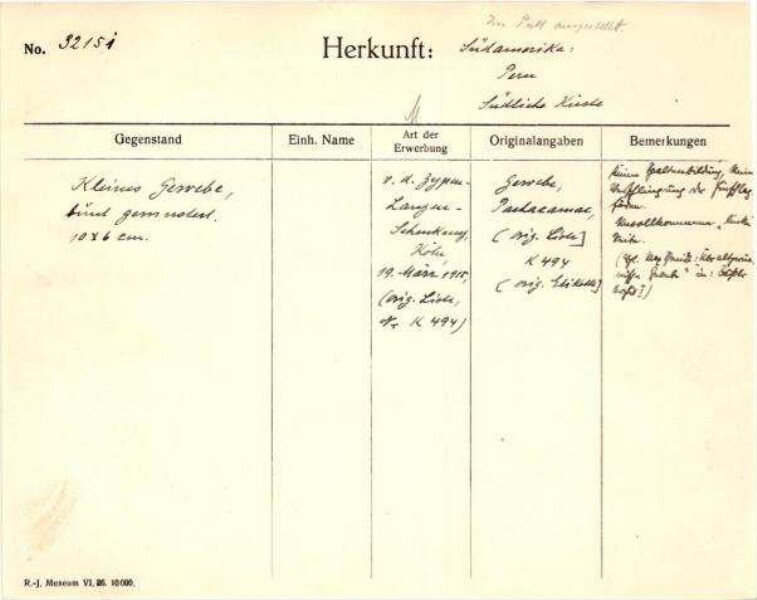 Im Pult ausgestellt.
No. 32151 Herkunft: Südamerika:
Peru
Südliche Küste
Gegenstand Einh. Name Art der Erwerbung Originalangaben Bemerkungen
Kleines Gewebe,
bunt gemustert.
10 x 6 cm.
v. d. Zypen-
Langen-
Schenkung,
Köln,
19. März 1915,
(orig. Liste,
Nr. K 494)
Gewebe,
Pachacamac,
(orig. Liste]
K 494
(orig. Etikette]
Keine Spaltenbildung, keine
Verschlingung der
Unvollkommene
(vgl. Max
in:
R.-J. Museum VI. 26. 10000.